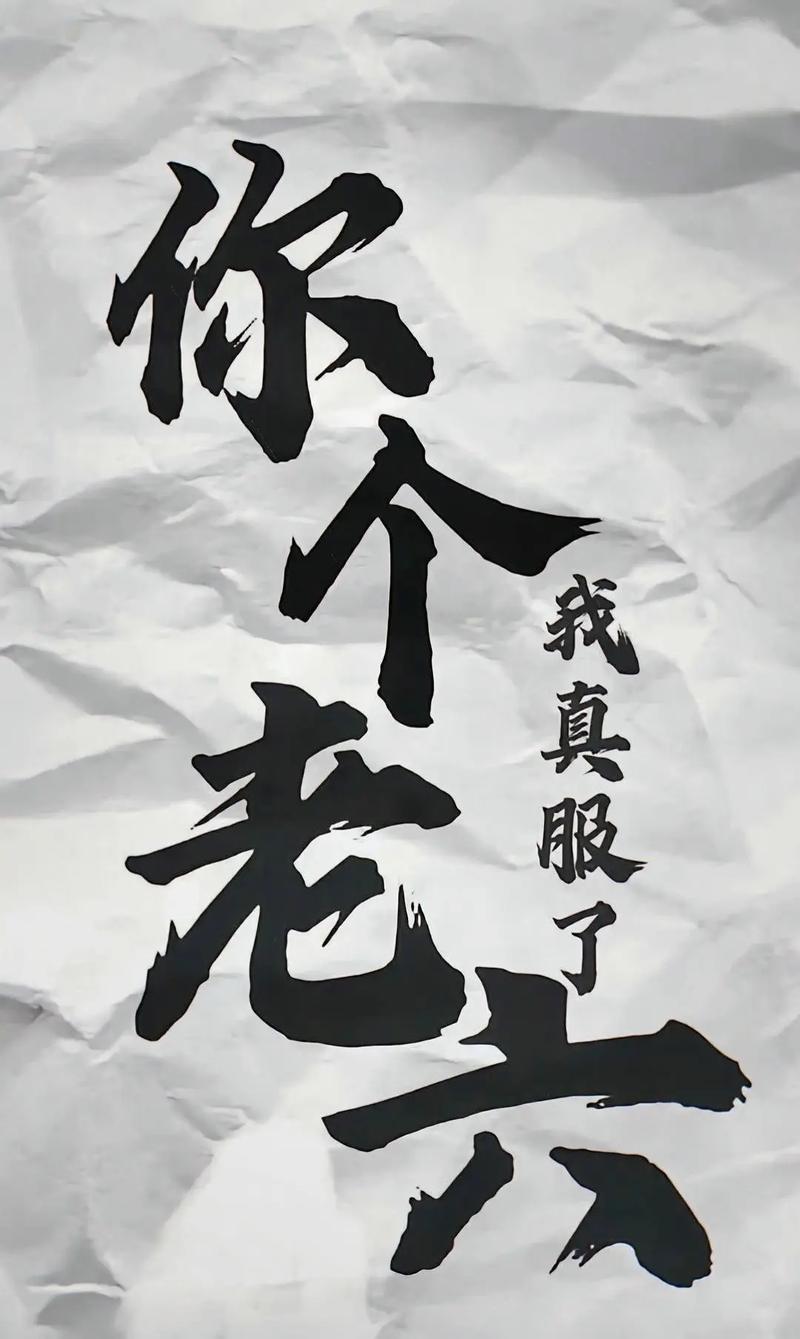 你个老六
我真服了